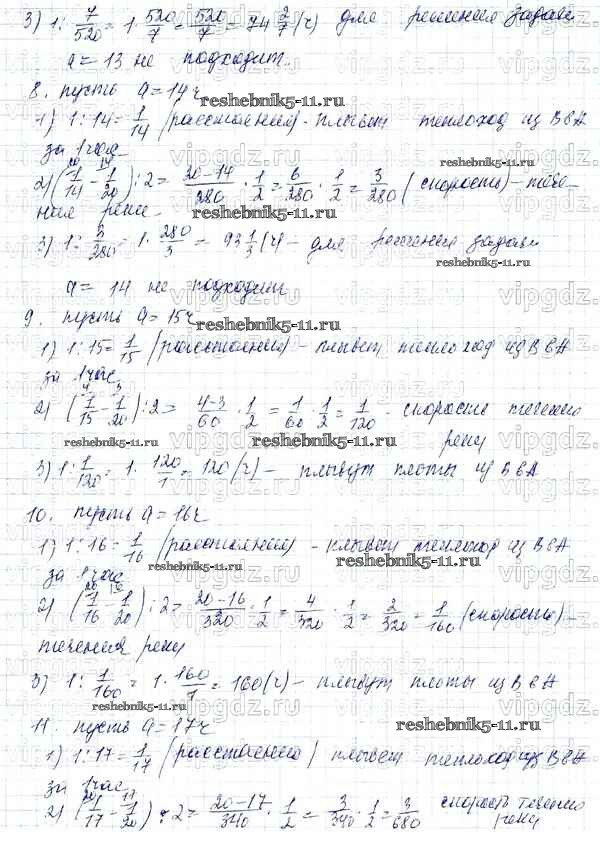 3) 1 : 7/520 = 1 · 520/7 = 520/7 = 74 2/7 (ч) для решения задачи
a = 13 не подходит.
8. пусть a = 14 ч
reshebnik5-11.ru
1) 1 : 14 = 1/14 (расстояния) - плывёт теплоход из В в А
за 1 час
2) (1/14 - 1/20) : 2 = (20-14)/280 · 1/2 = 6/280 · 1/2 = 3/280 (скорость) - тече-
ния реки
reshebnik5-11.ru
3) 1 : 3/280 = 1 · 280/3 = 93 1/3 (ч) - для решения задачи
reshebnik5-11.ru
a = 14 не подходит
9. пусть a = 15 ч
reshebnik5-11.ru
1) 1 : 15 = 1/15 (расстояния) - плывёт теплоход из В в А
за 1 час
2) (1/15 - 1/20) : 2 = (4-3)/60 · 1/2 = 1/60 · 1/2 = 1/120 - скорость течения
реки
reshebnik5-11.ru
reshebnik5-11.ru
3) 1 : 1/120 = 1 · 120/1 = 120 (ч) - плывут плоты из В в А
10. пусть a = 16 ч
1) 1 : 16 = 1/16 (расстояния) - плывёт теплоход из В в А
за 1 час
reshebnik5-11.ru
2) (1/16 - 1/20) : 2 = (20-16)/320 · 1/2 = 4/320 · 1/2 = 2/320 = 1/160 (скорость) -
течения реки
3) 1 : 1/160 = 1 · 160/1 = 160 (ч) - плывут плоты из В в А
reshebnik5-11.ru
11. пусть a = 17 ч
reshebnik5-11.ru
1) 1 : 17 = 1/17 (расстояния) плывёт теплоход из В в А
за 1 час
2) (1/17 - 1/20) : 2 = (20-17)/340 · 1/2 = 3/340 · 1/2 = 3/680 скорость течения
реки